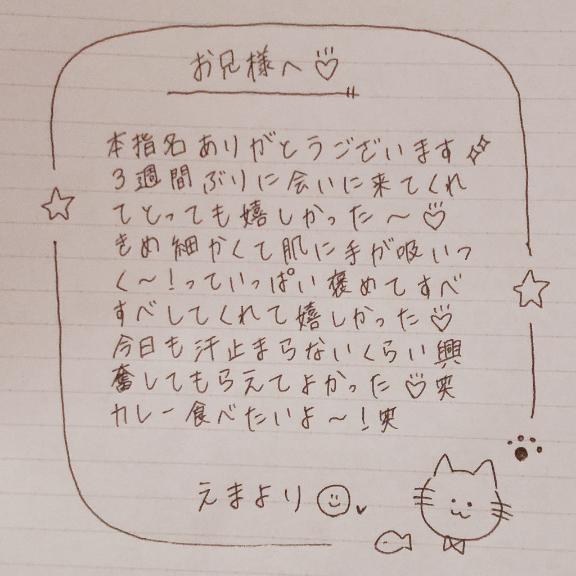 お兄様へ♡
本指名ありがとうございます
3週間ぶりに会いに来てくれ
てとっても嬉しかった〜♡
きめ細かくて肌に手が吸いつ
く〜!っていっぱい褒めてすべ
すべしてくれて嬉しかった♡
今日も汗止まらないくらい興
奮してもらえてよかった♡笑
カレー食べたいよ〜!笑
えまより